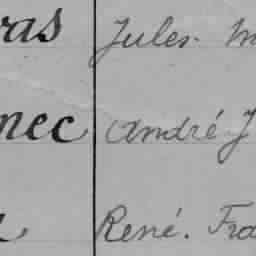 ras Jules. M
nec André J
René. Fra